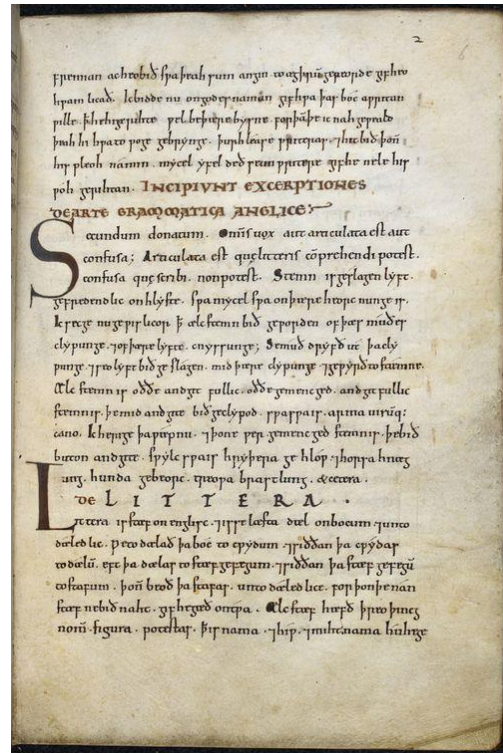 2
fremman ac her bið sƿa þeah sum angin to ægþrū gereorde gif hit
hƿam licað. Ic bidde nu on godes naman gif hƿa þas boc aƿritan
ƿille. ꝥ he hi gerihte ƿel be þære bysne. forþā þe ic nah geƿeald
þeah hi hƿa to ƿoge gebrynge. þurh lease ƿriteras. ⁊ hit bið þoñ
his pleoh na min. mycel yfel deð se unƿritere gif he nele his
ƿoh gerihtan. INCIPIUNT EXCERPTIONES
DE ARTE GRAMMATICA ANGLICE:
Secundum donatum. Omīs uox aut articulata est aut
confusa; Articulata est quę litteris cōprehendi potest.
confusa quę scribi non potest. Stemn is geslagen lyft.
gefredendlic on hlyste. sƿa mycel sƿa on þære heorcnunge is.
Ic secge nu geƿislicor. ꝥ ælc stemn bið geƿorden of þæs muðes
clypunge. ⁊ of þære lyfte. cnyssunge; Se muð dryfð ut þa cly
punge. ⁊ seo lyft bið geslagen. mid þære clypunge ⁊ geƿyrð to stemne.
Ælc stemn is oððe andgitfullic. oððe gemencged. andgitfullic
stemn is. þe mid andgite bið geclypod. sƿa sƿa is. arma uirūq;
cano. Ic herige þa ƿæpnu. ⁊ þone ƿer. gemencged stemn is. þe bið
buton andgite. sƿylc sƿa is hryþera gehlop. ⁊ horsa hnæg
ung. hunda gebeorc. treoƿa brastlung. & cetera.
DE LITTERA.
Littera is stæf on englisc. ⁊ is se læsta dæl on bocum ⁊ unto
dæledlic. Ƿe todælað þa boc to cƿydum. ⁊ siððan þa cƿydas
to dælū. eft þa dælas to stæfgefegum. ⁊ siððan þa stæfgefegu
to stafum. þoñ beoð þa stafas. untodæledlice. for þon þe nan
stæf ne bið naht. gif he gæð on tƿa. Ælc stæf hæfð þreo þincg
nomē. figura. potestas. ꝥ is nama. ⁊ hiƿ. ⁊ miht. nama hu he ge